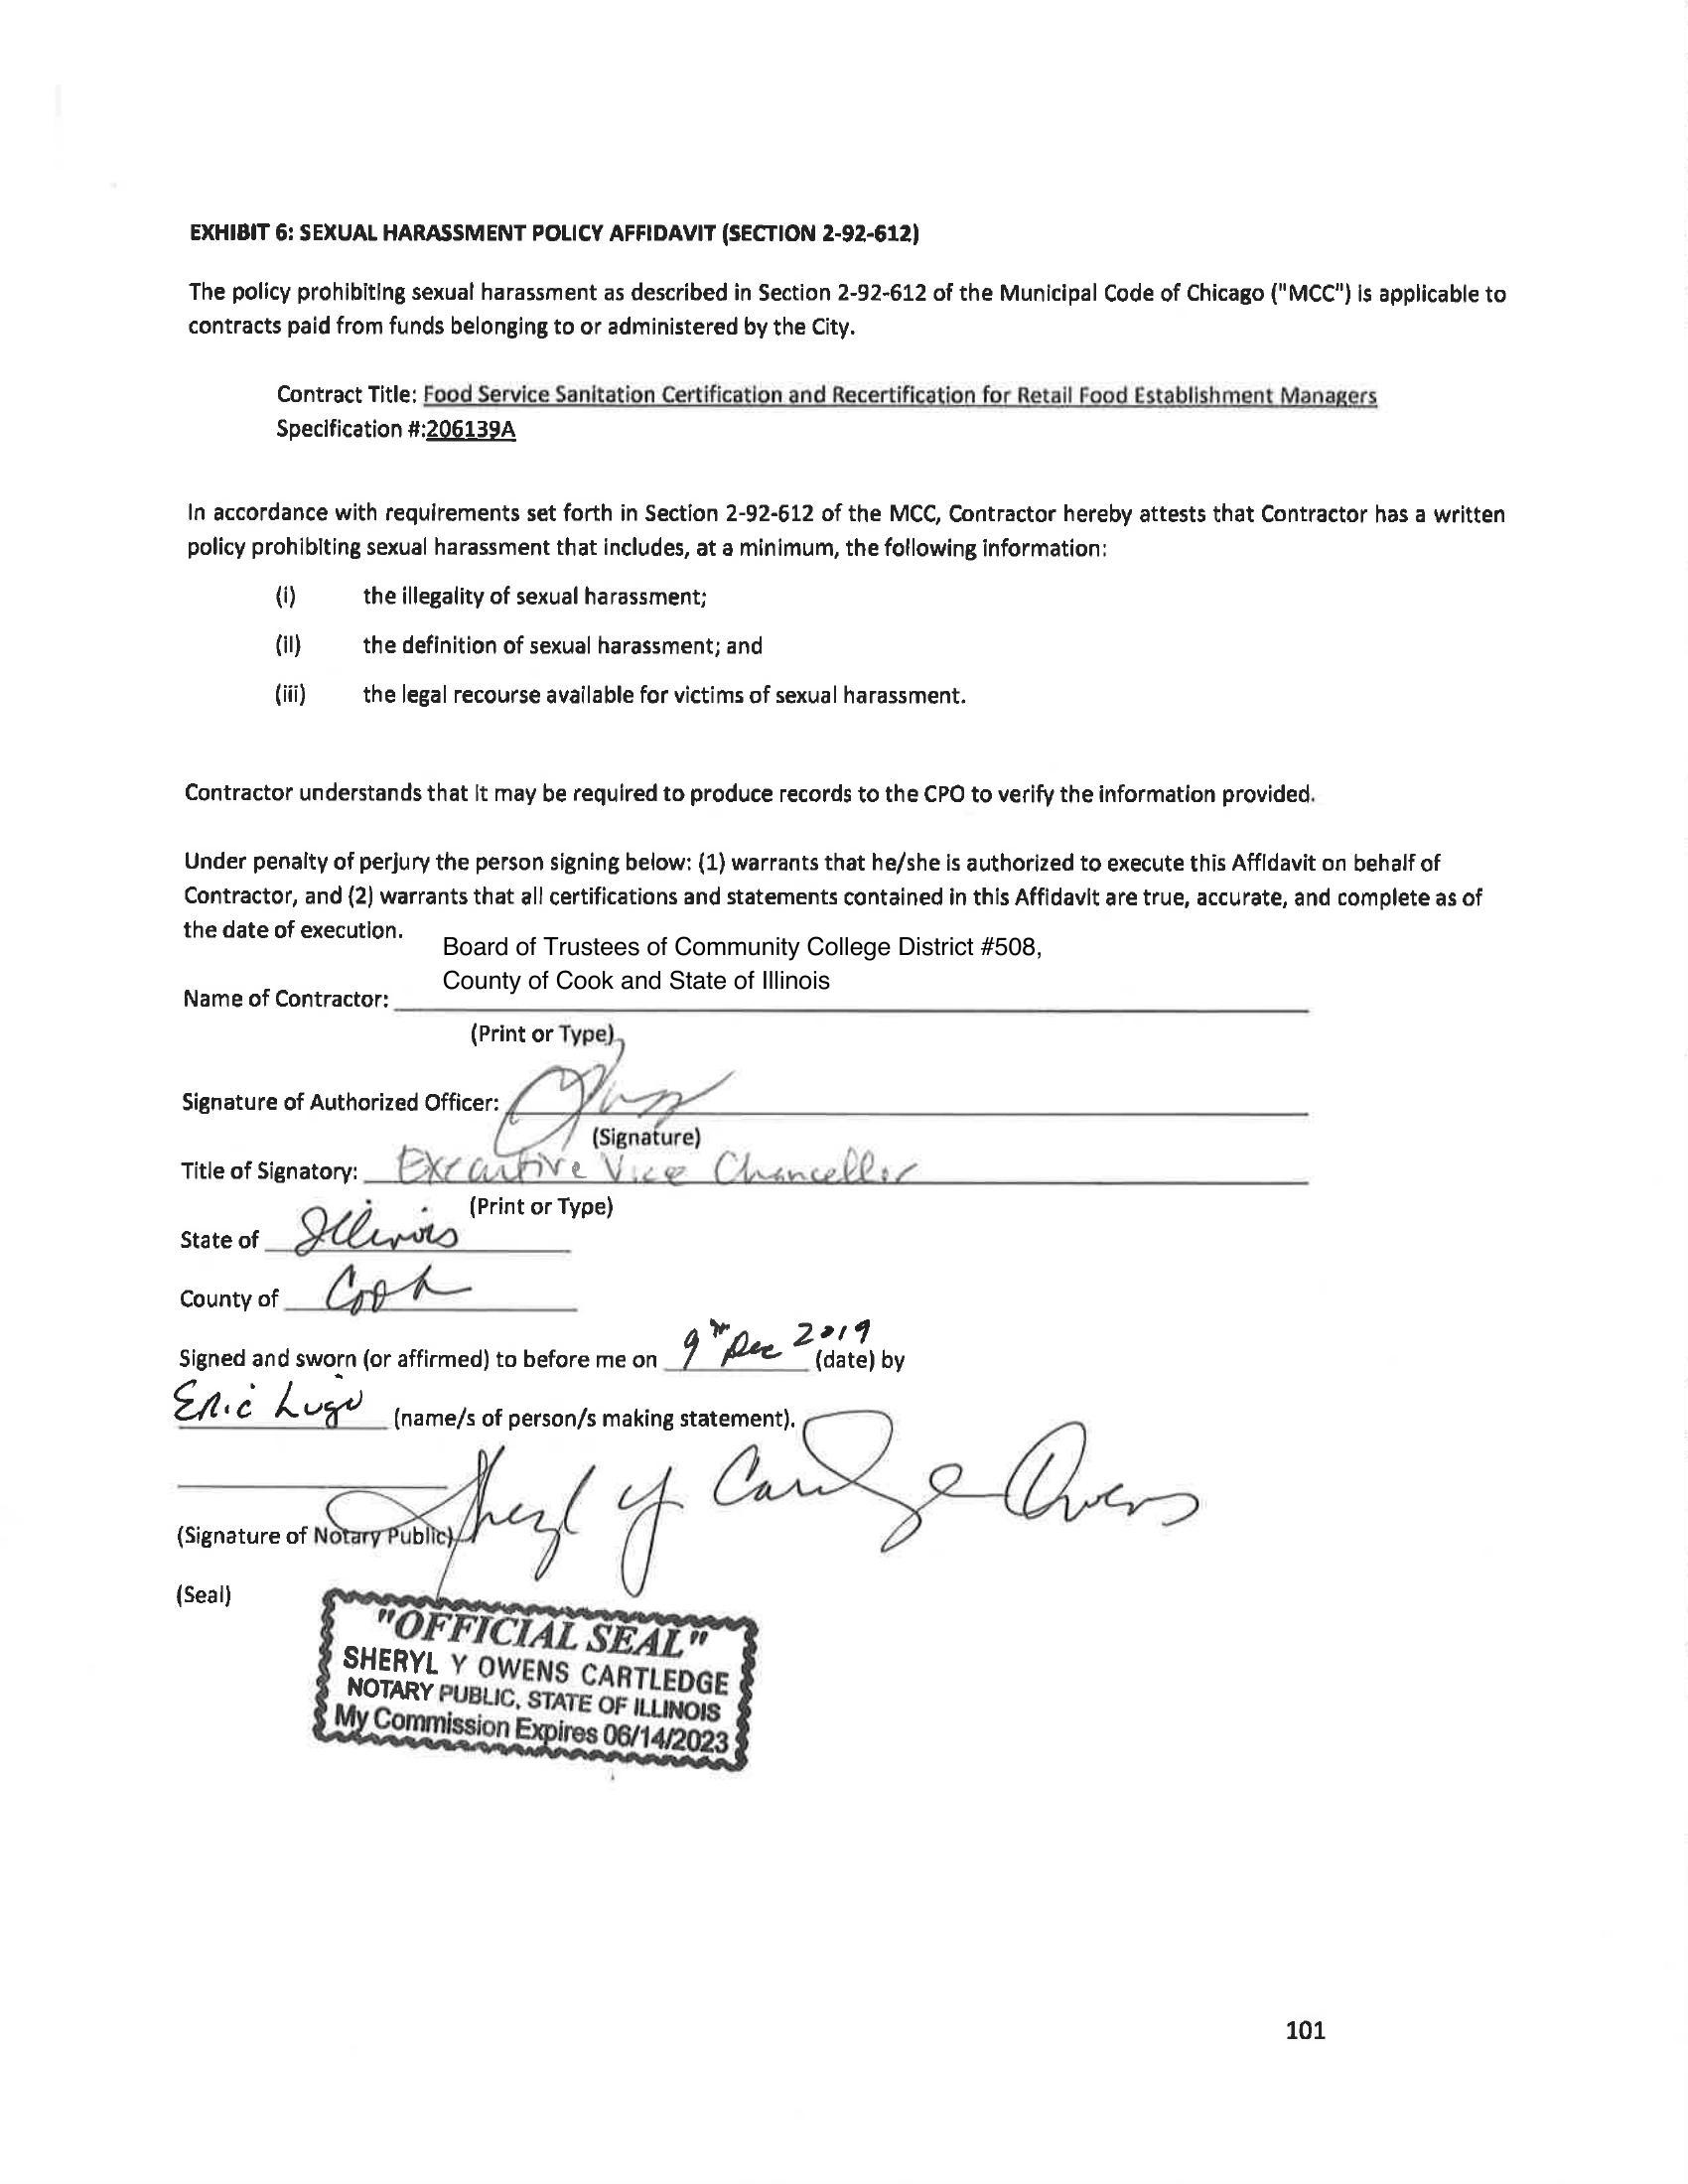 EXHIBIT 6: SEXUAL HARASSMENT POLICY AFFIDAVIT (SECTION 2-92-612)
The policy prohibiting sexual harassment as described in Section 2-92-612 of the Municipal Code of Chicago ("MCC") is applicable to
contracts paid from funds belonging to or administered by the City.
Contract Title: Food Service Sanitation Certification and Recertification for Retail Food Establishment Managers
Specification #:206139A
In accordance with requirements set forth in Section 2-92-612 of the MCC, Contractor hereby attests that Contractor has a written
policy prohibiting sexual harassment that includes, at a minimum, the following information:
(i) the illegality of sexual harassment;
(ii) the definition of sexual harassment; and
(iii) the legal recourse available for victims of sexual harassment.
Contractor understands that it may be required to produce records to the CPO to verify the information provided.
Under penalty of perjury the person signing below: (1) warrants that he/she is authorized to execute this Affidavit on behalf of
Contractor, and (2) warrants that all certifications and statements contained in this Affidavit are true, accurate, and complete as of
the date of execution.
Board of Trustees of Community College District #508,
County of Cook and State of Illinois
Name of Contractor:
(Print or Type)
Signature of Authorized Officer:
(Signature)
Title of Signatory: Executive Vice Chancellor
(Print or Type)
State of Illinois
County of Cook
Signed and sworn (or affirmed) to before me on 9th Dec 2019 (date) by
Eric Lugo (name/s of person/s making statement).
Sheryl Y Cartledge Owens
(Signature of Notary Public)
(Seal)
"OFFICIAL SEAL"
SHERYL Y OWENS CARTLEDGE
NOTARY PUBLIC, STATE OF ILLINOIS
My Commission Expires 06/14/2023
101